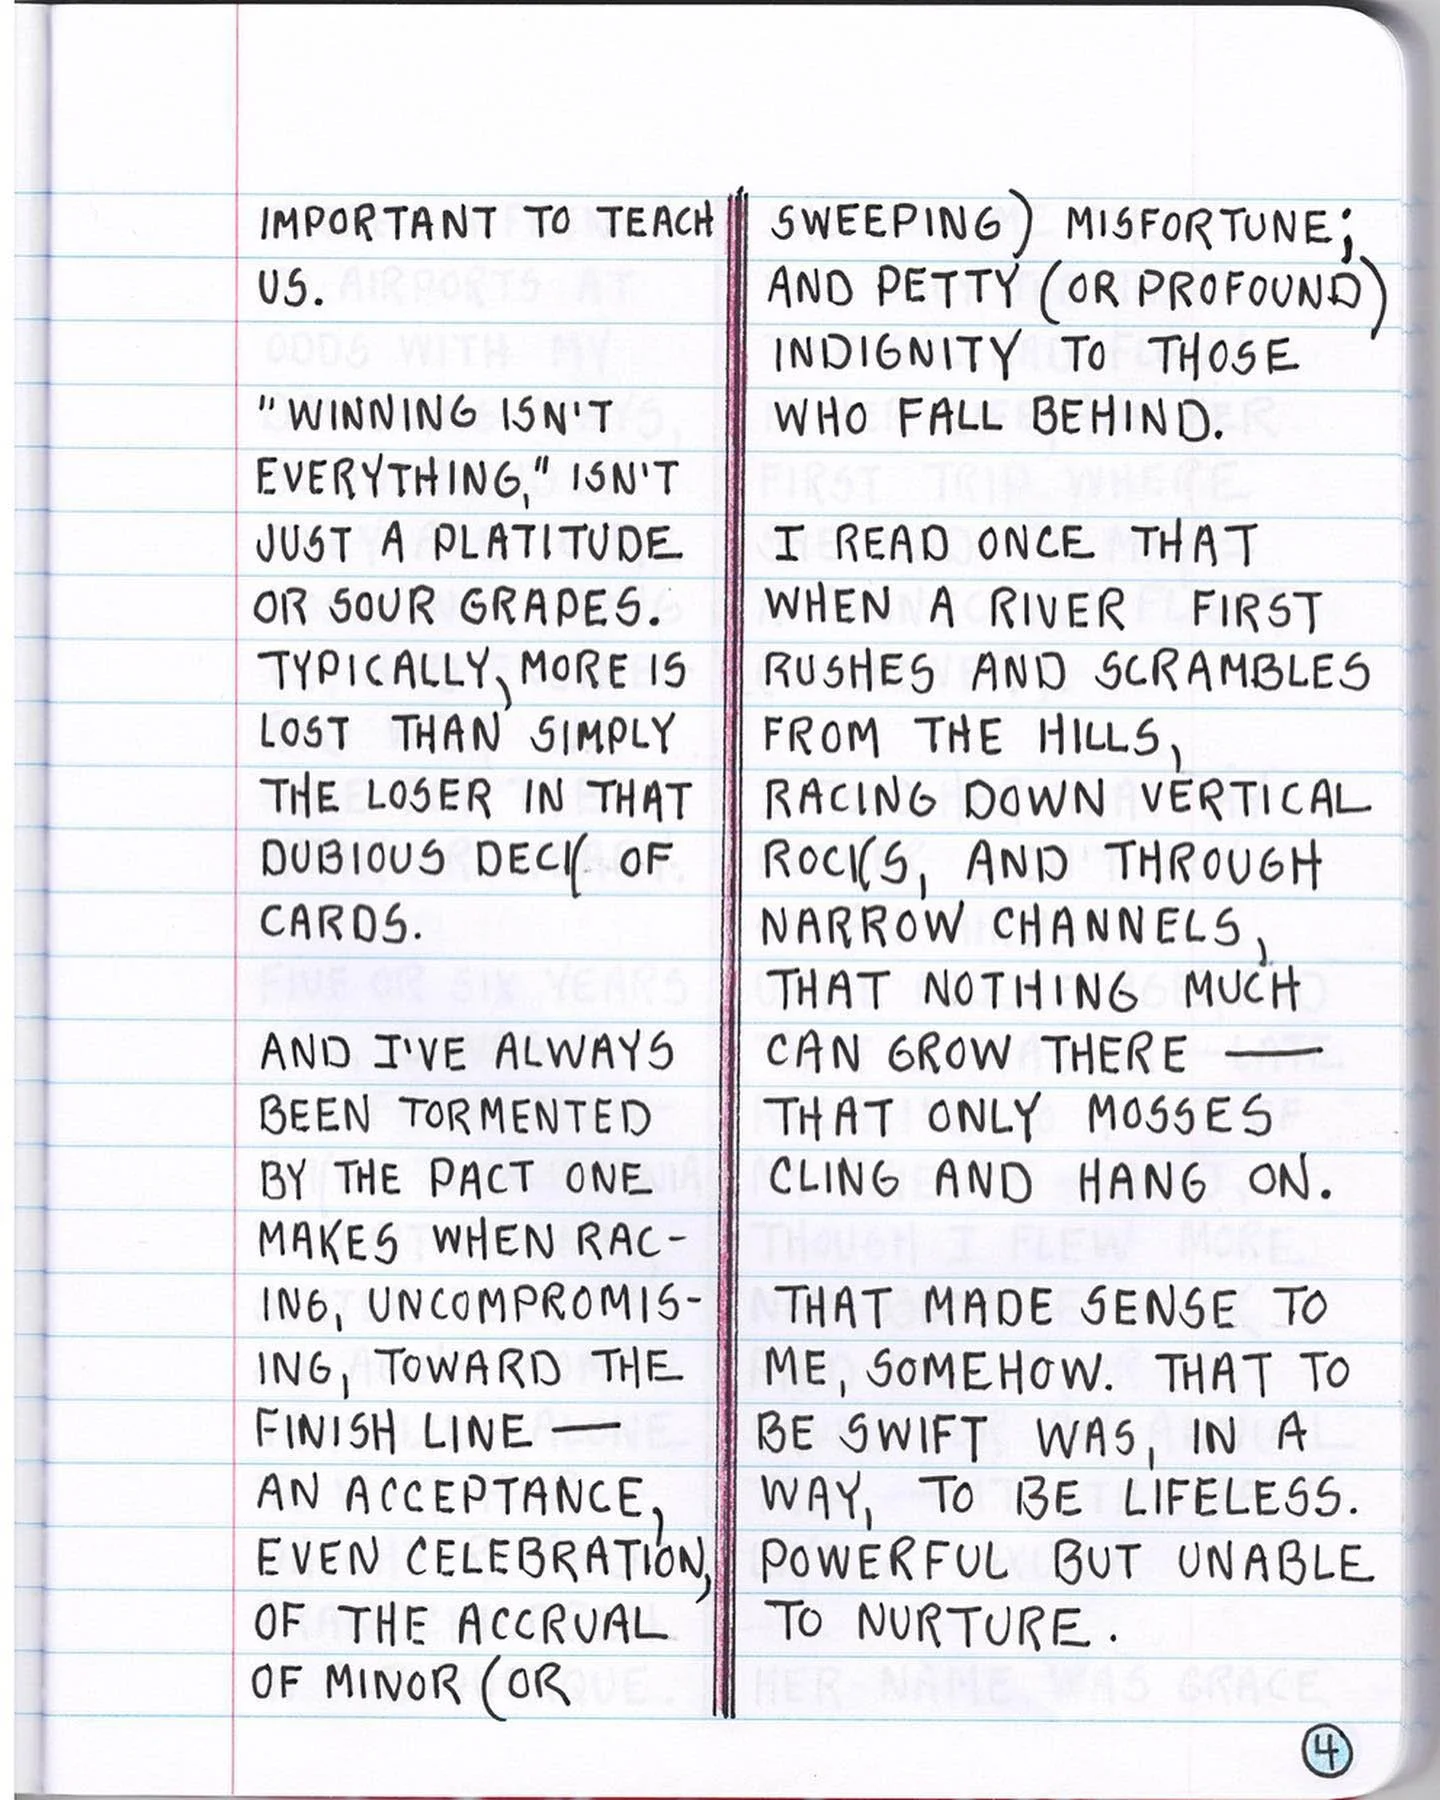 IMPORTANT TO TEACH
US.
"WINNING ISN'T
EVERYTHING," ISN'T
JUST A PLATITUDE
OR SOUR GRAPES.
TYPICALLY, MORE IS
LOST THAN SIMPLY
THE LOSER IN THAT
DUBIOUS DECK OF
CARDS.
AND I'VE ALWAYS
BEEN TORMENTED
BY THE PACT ONE
MAKES WHEN RAC-
ING, UNCOMPROMIS-
ING, TOWARD THE
FINISH LINE —
AN ACCEPTANCE,
EVEN CELEBRATION,
OF THE ACCRUAL
OF MINOR (OR
SWEEPING) MISFORTUNE;
AND PETTY (OR PROFOUND)
INDIGNITY TO THOSE
WHO FALL BEHIND.
I READ ONCE THAT
WHEN A RIVER FIRST
RUSHES AND SCRAMBLES
FROM THE HILLS,
RACING DOWN VERTICAL
ROCKS, AND THROUGH
NARROW CHANNELS,
THAT NOTHING MUCH
CAN GROW THERE —
THAT ONLY MOSSES
CLING AND HANG ON.
THAT MADE SENSE TO
ME, SOMEHOW. THAT TO
BE SWIFT WAS, IN A
WAY, TO BE LIFELESS.
POWERFUL BUT UNABLE
TO NURTURE.
4